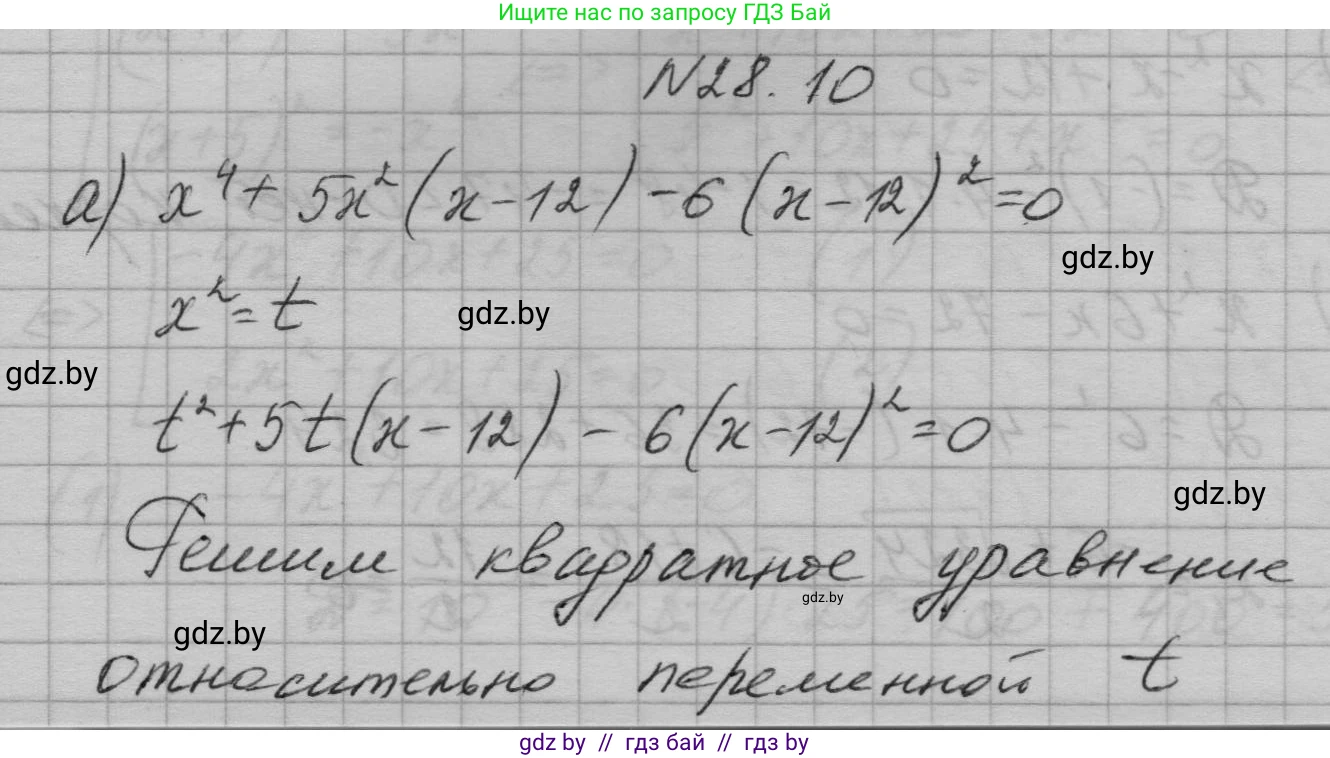 Ищите нас по запросу ГДЗ Бай
N28.10
а) x⁴ + 5x² (x - 12) - 6 (x - 12)² = 0
gdz.by
x² = t
gdz.by
gdz.by
t² + 5t (x - 12) - 6 (x - 12)² = 0
gdz.by
Решим квадратное уравнение
gdz.by
gdz.by
относительно переменной t
gdz by // гдз бай // gdz by